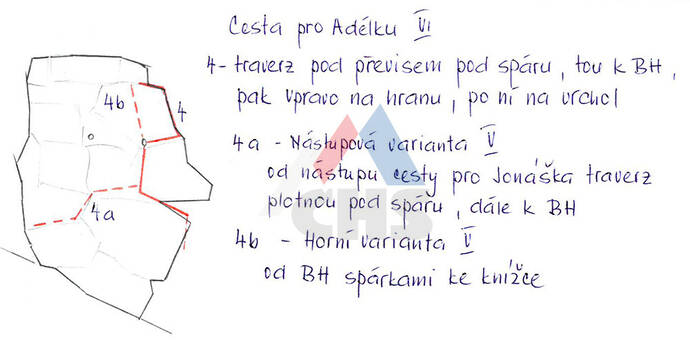 Cesta pro Adélku VI
4 - traverz pod převisem pod spáru, tou k BH,
pak vpravo na hranu, po ní na vrchol
4a - Nástupová varianta V
od nástupu cesty pro Jonáška traverz
plotnou pod spáru, dále k BH
4b - Horní varianta V
od BH spárkami ke knížce
4b
4
4a
CHS